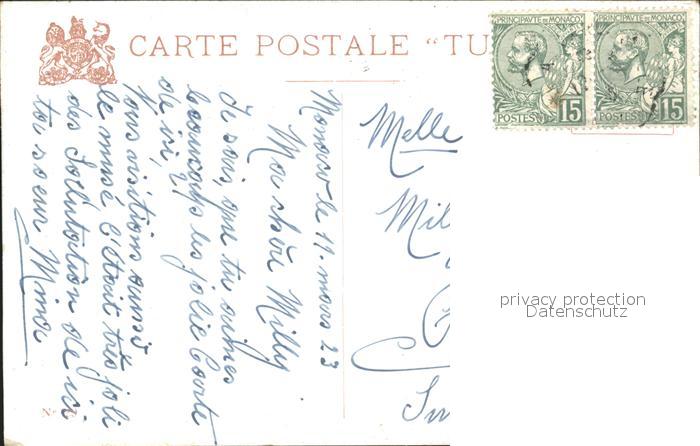 CARTE POSTALE "TU
PRINCIPAUTÉ DE MONACO
15
POSTES
PRINCIPAUTÉ DE MONACO
15
POSTES
Monaco le 11. mars 23
Ma chère Milly
Je sais, que tu aimes
beaucoup les jolie Carte
de ici,
Nous visitions aussi
le musé c'était très joli
des Sollutation de ici
ta soeur Mimi
Melle
Mil
privacy protection
Datenschutz